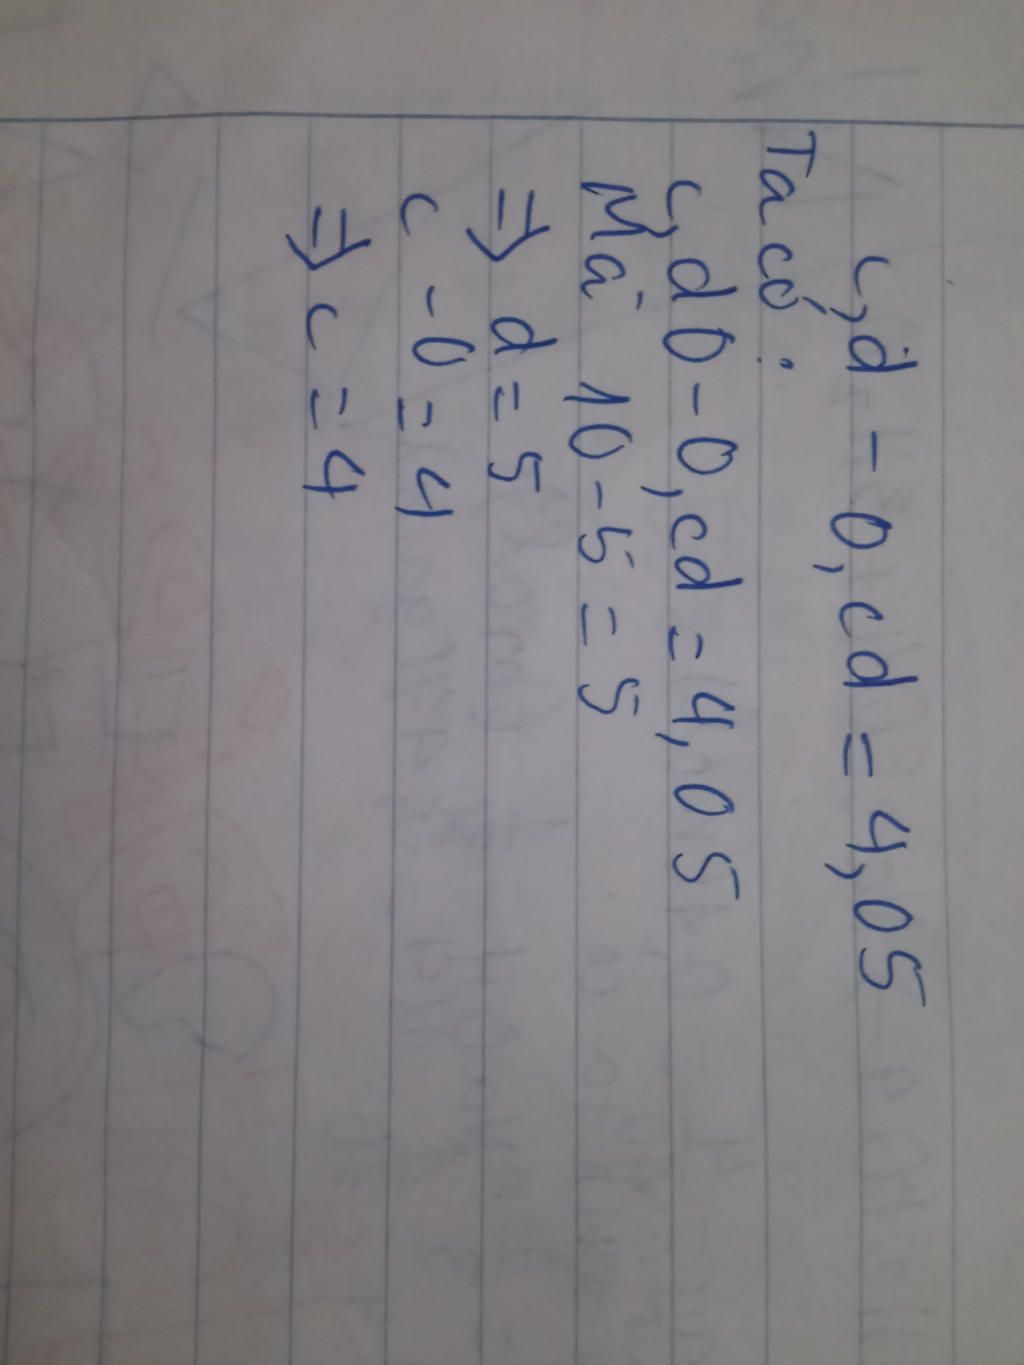 c,d - 0,cd = 4,05
Ta có :
c,d0 - 0,cd = 4,05
Mà 10 - 5 = 5
=> d = 5
c - 0 = 4
=> c = 4